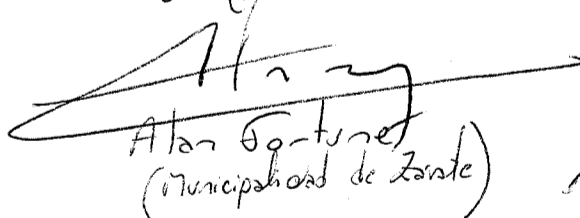 Alan Fortunet
(Municipalidad de Zárate)